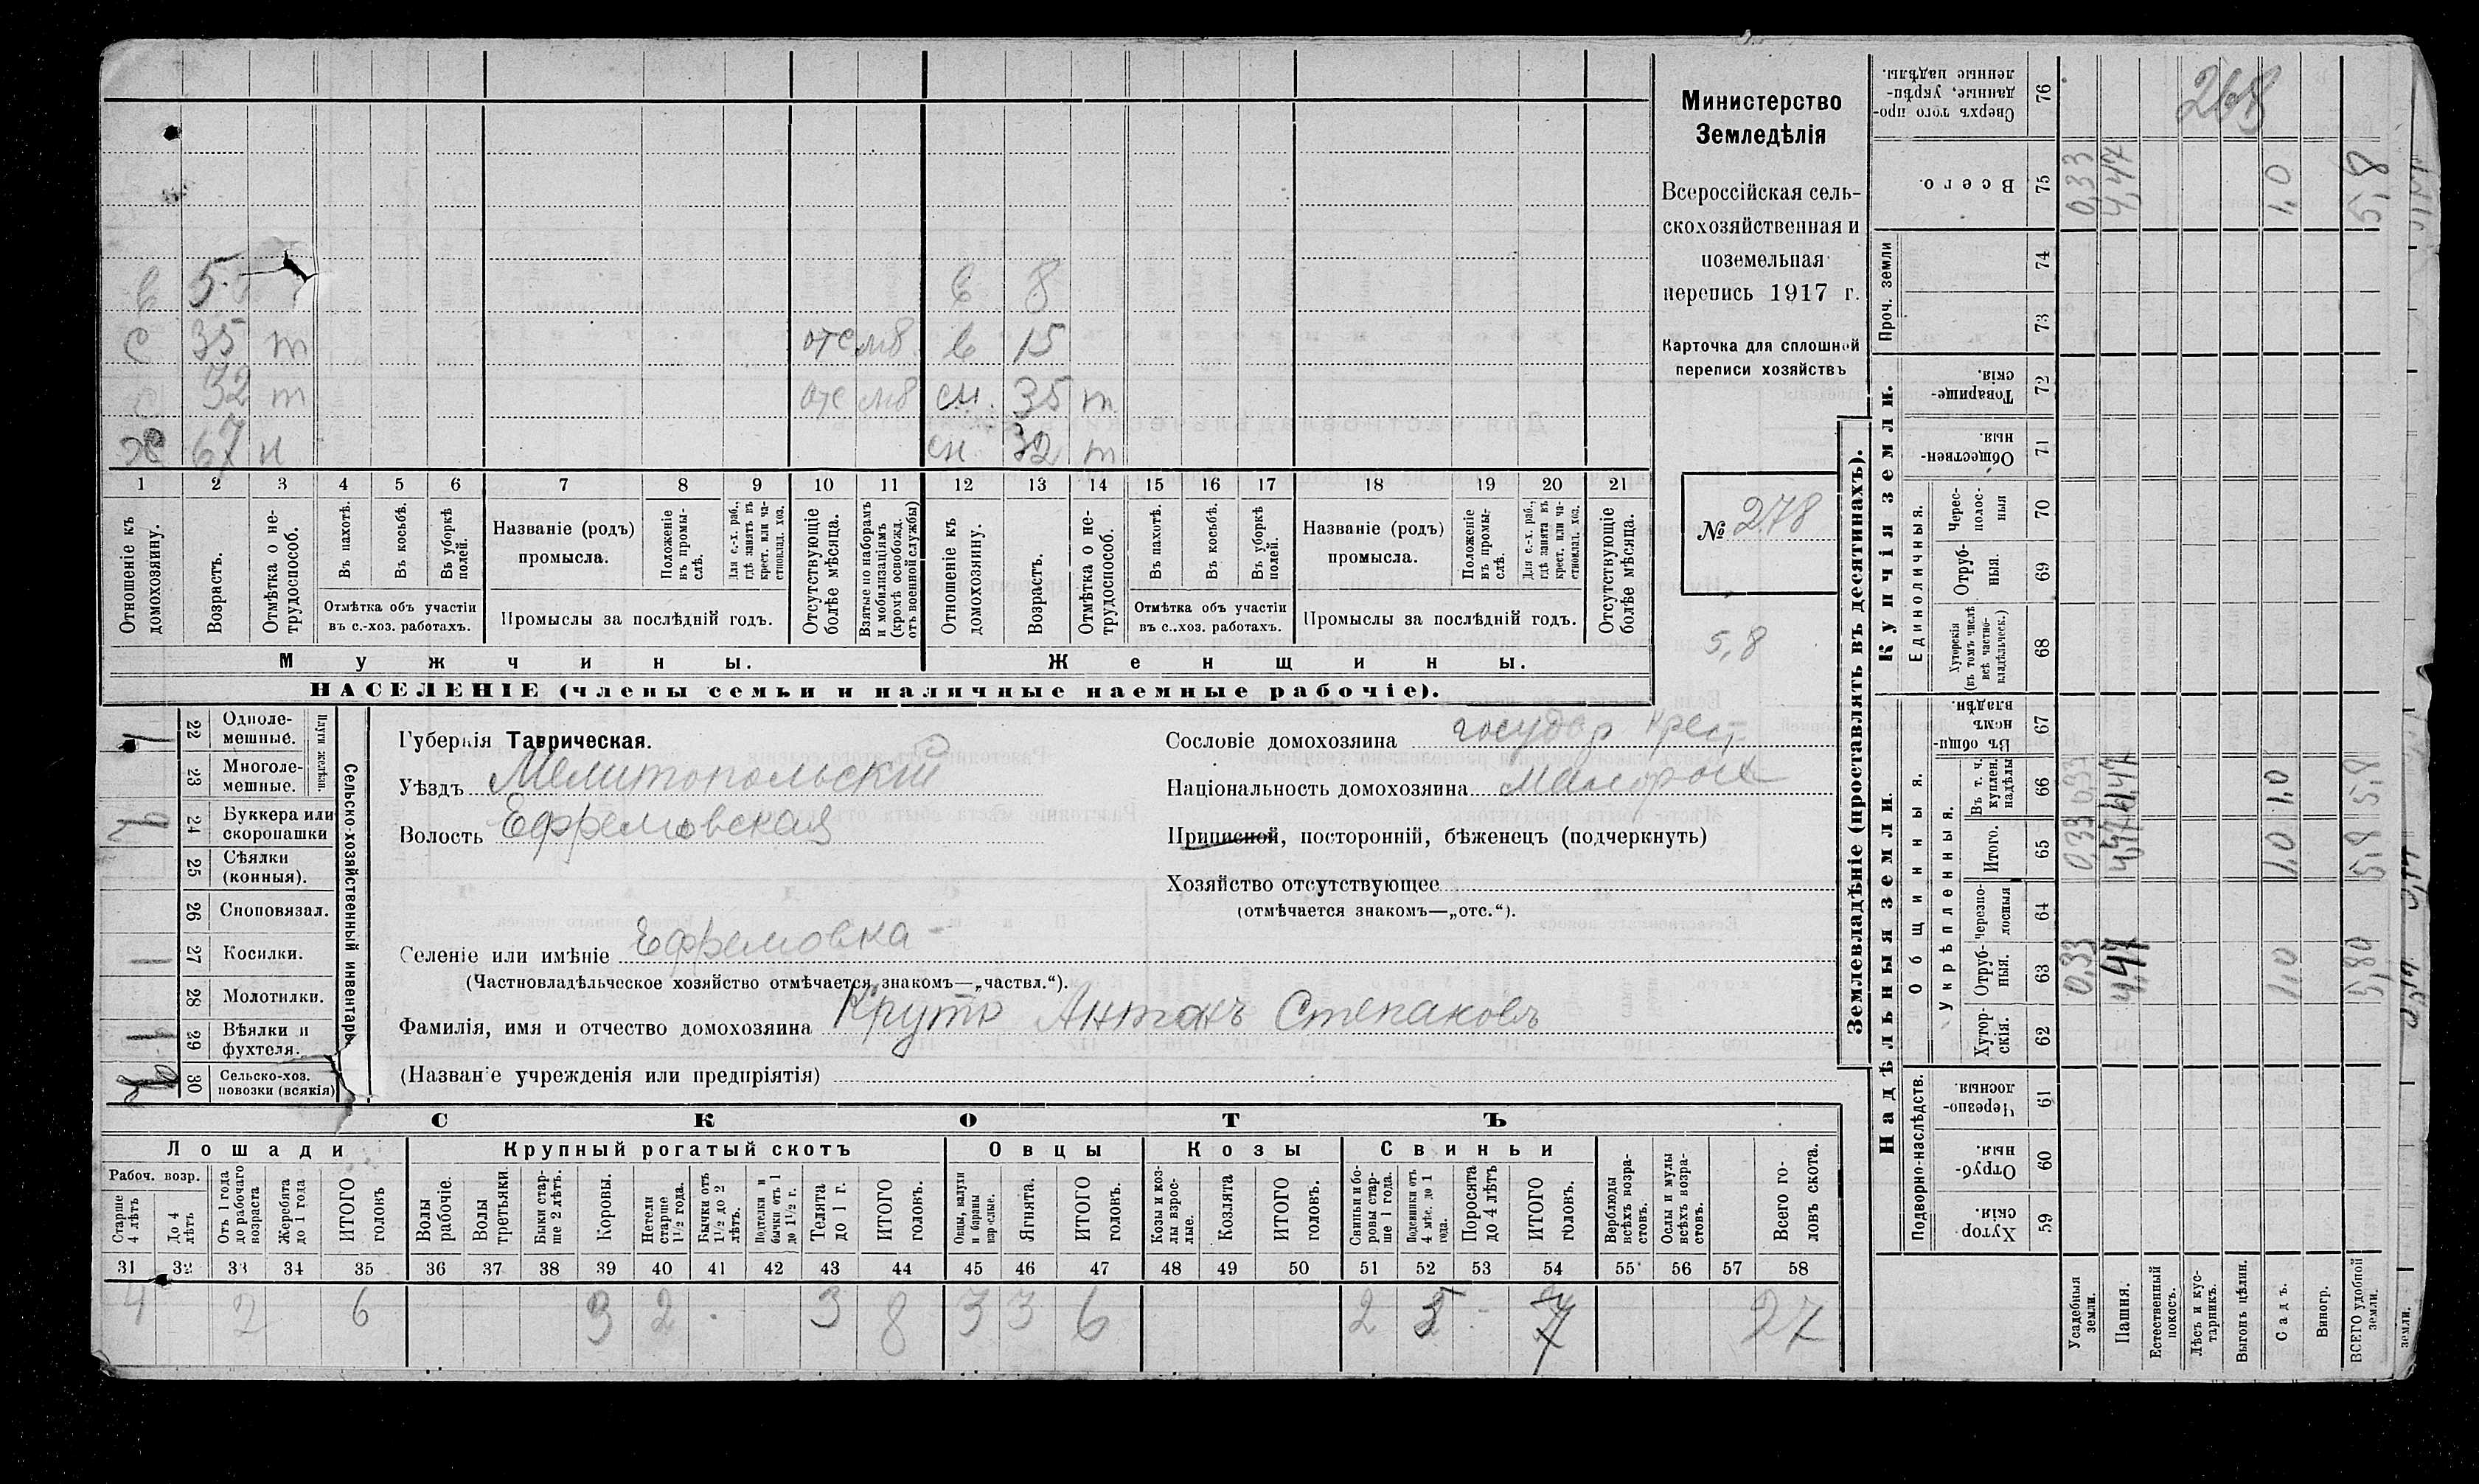 в 5 в 8
с 35 т отс мб в 15
с 32 т отс мб сн. 35 т
х 67 н сн 32 т
1 2 3 4 5 6 7 8 9 10 11 12 13 14 15 16 17 18 19 20 21
Отношеніе къ домохозяину.
Возрастъ.
Отмѣтка о нетрудоспособ.
Въ пахотѣ.
Въ косьбѣ.
Въ уборкѣ полей.
Отмѣтка объ участіи
въ с.-хоз. работахъ.
Названіе (родъ)
промысла.
Положеніе въ промыслѣ.
Для с.-х. раб., гдѣ занятъ въ крест. или частновлад. хоз.
Промыслы за послѣдній годъ.
Отсутствующіе болѣе мѣсяца.
Взятые по наборамъ и мобилизаціямъ (кромѣ освобожд. отъ военной службы)
Отношеніе къ домохозяину.
Возрастъ.
Отмѣтка о нетрудоспособ.
Въ пахотѣ.
Въ косьбѣ.
Въ уборкѣ полей.
Отмѣтка объ участіи
въ с.-хоз. работахъ.
Названіе (родъ)
промысла.
Положеніе въ промыслѣ.
Для с.-х. раб., гдѣ занятъ въ крест. или частновлад. хоз.
Промыслы за послѣдній годъ.
Отсутствующіе болѣе мѣсяца.
Мужчины. Женщины.
НАСЕЛЕНІЕ (члены семьи и наличные наемные рабочіе).
Министерство
Земледѣлія
Всероссійская сель-
скохозяйственная и
поземельная
перепись 1917 г.
Карточка для сплошной
переписи хозяйствъ
№ 278
5,8
Сельско-хозяйственный инвентарь.
Плуги желѣзн.
22 Одноле-
мешные. 1
23 Многоле-
мешные.
24 Буккера или
скоропашки
25 Сѣялки
(конныя).
26 Сноповязал.
27 Косилки. 1
28 Молотилки.
29 Вѣялки и
фухтеля. 1
30 Сельско-хоз.
повозки (всякія)
Губернія Таврическая.
Уѣздъ Мелитопольскій
Волость Ефремовская
Селеніе или имѣніе Ефремовка
(Частновладѣльческое хозяйство отмѣчается знакомъ—„частвл.“).
Фамилія, имя и отчество домохозяина Круто Антонъ Степановъ
(Названіе учрежденія или предпріятія)
Сословіе домохозяина государ крест
Національность домохозяина малоросъ
Приписной, посторонній, бѣженецъ (подчеркнуть)
Хозяйство отсутствующее
(отмѣчается знакомъ—„отс.“).
СКОТЪ
Лошади Крупный рогатый скотъ Овцы Козы Свиньи
Рабоч. возр.
Старше 4 лѣтъ
До 4 лѣтъ
Отъ 1 года до рабочаго возраста
Жеребята до 1 года
ИТОГО головъ
Волы рабочіе.
Волы третьяки.
Быки старше 2 лѣтъ.
Коровы.
Нетели старше 1½ года.
Бычки отъ 1½ до 2 лѣтъ.
Подтелки и бычки отъ 1 до 1½ г.
Телята до 1 г.
ИТОГО головъ.
Овцы, валухи и бараны взрослые.
Ягнята.
ИТОГО головъ.
Козы и козлы взрослые.
Козлята
ИТОГО головъ.
Свиньи и боровы старше 1 года.
Подсвинки отъ 4 мѣс. до 1 года.
Поросята до 4 лѣтъ
ИТОГО головъ.
Верблюды всѣхъ возрастовъ.
Ослы и мулы всѣхъ возрастовъ.
Всего головъ скота.
31 32 33 34 35 36 37 38 39 40 41 42 43 44 45 46 47 48 49 50 51 52 53 54 55 56 57 58
4 2 6 3 2 3 8 3 3 6 2 7 27
Землевладѣніе (проставлять въ десятинахъ).
Купчія земли.
Надѣльныя земли.
Сверхъ того проданные, укрѣпленные надѣлы. 76
268
Всего. 75 0,33 4,47 1,0 5,8
Проч. земли
74
73
Товарищескія. 72
Общественныя. 71
Единоличныя.
Чересполосныя 70
Отрубныя. 69
Хуторскія (въ томъ числѣ всѣ частновладѣльческ.) 68
Общинныя.
Въ общинномъ владѣн. 67
Укрѣпленныя.
Въ т. ч. куплен. надѣлы 66 0,33 4,47 1,0 5,8
Итого. 65 0,33 4,47 1,0 5,8
Черезполосныя 64
Отрубныя. 63 0,33 4,47 1,0 5,80
Хуторскія. 62
Подворно-наслѣдств.
Черезполосныя. 61
Отрубныя. 60
Хуторскія. 59
Усадебныя земли.
Пашня.
Естественный покосъ.
Лѣсъ и кустарникъ.
Выгонъ цѣлин.
Садъ.
Виногр.
ВСЕГО удобной земли.
земли.